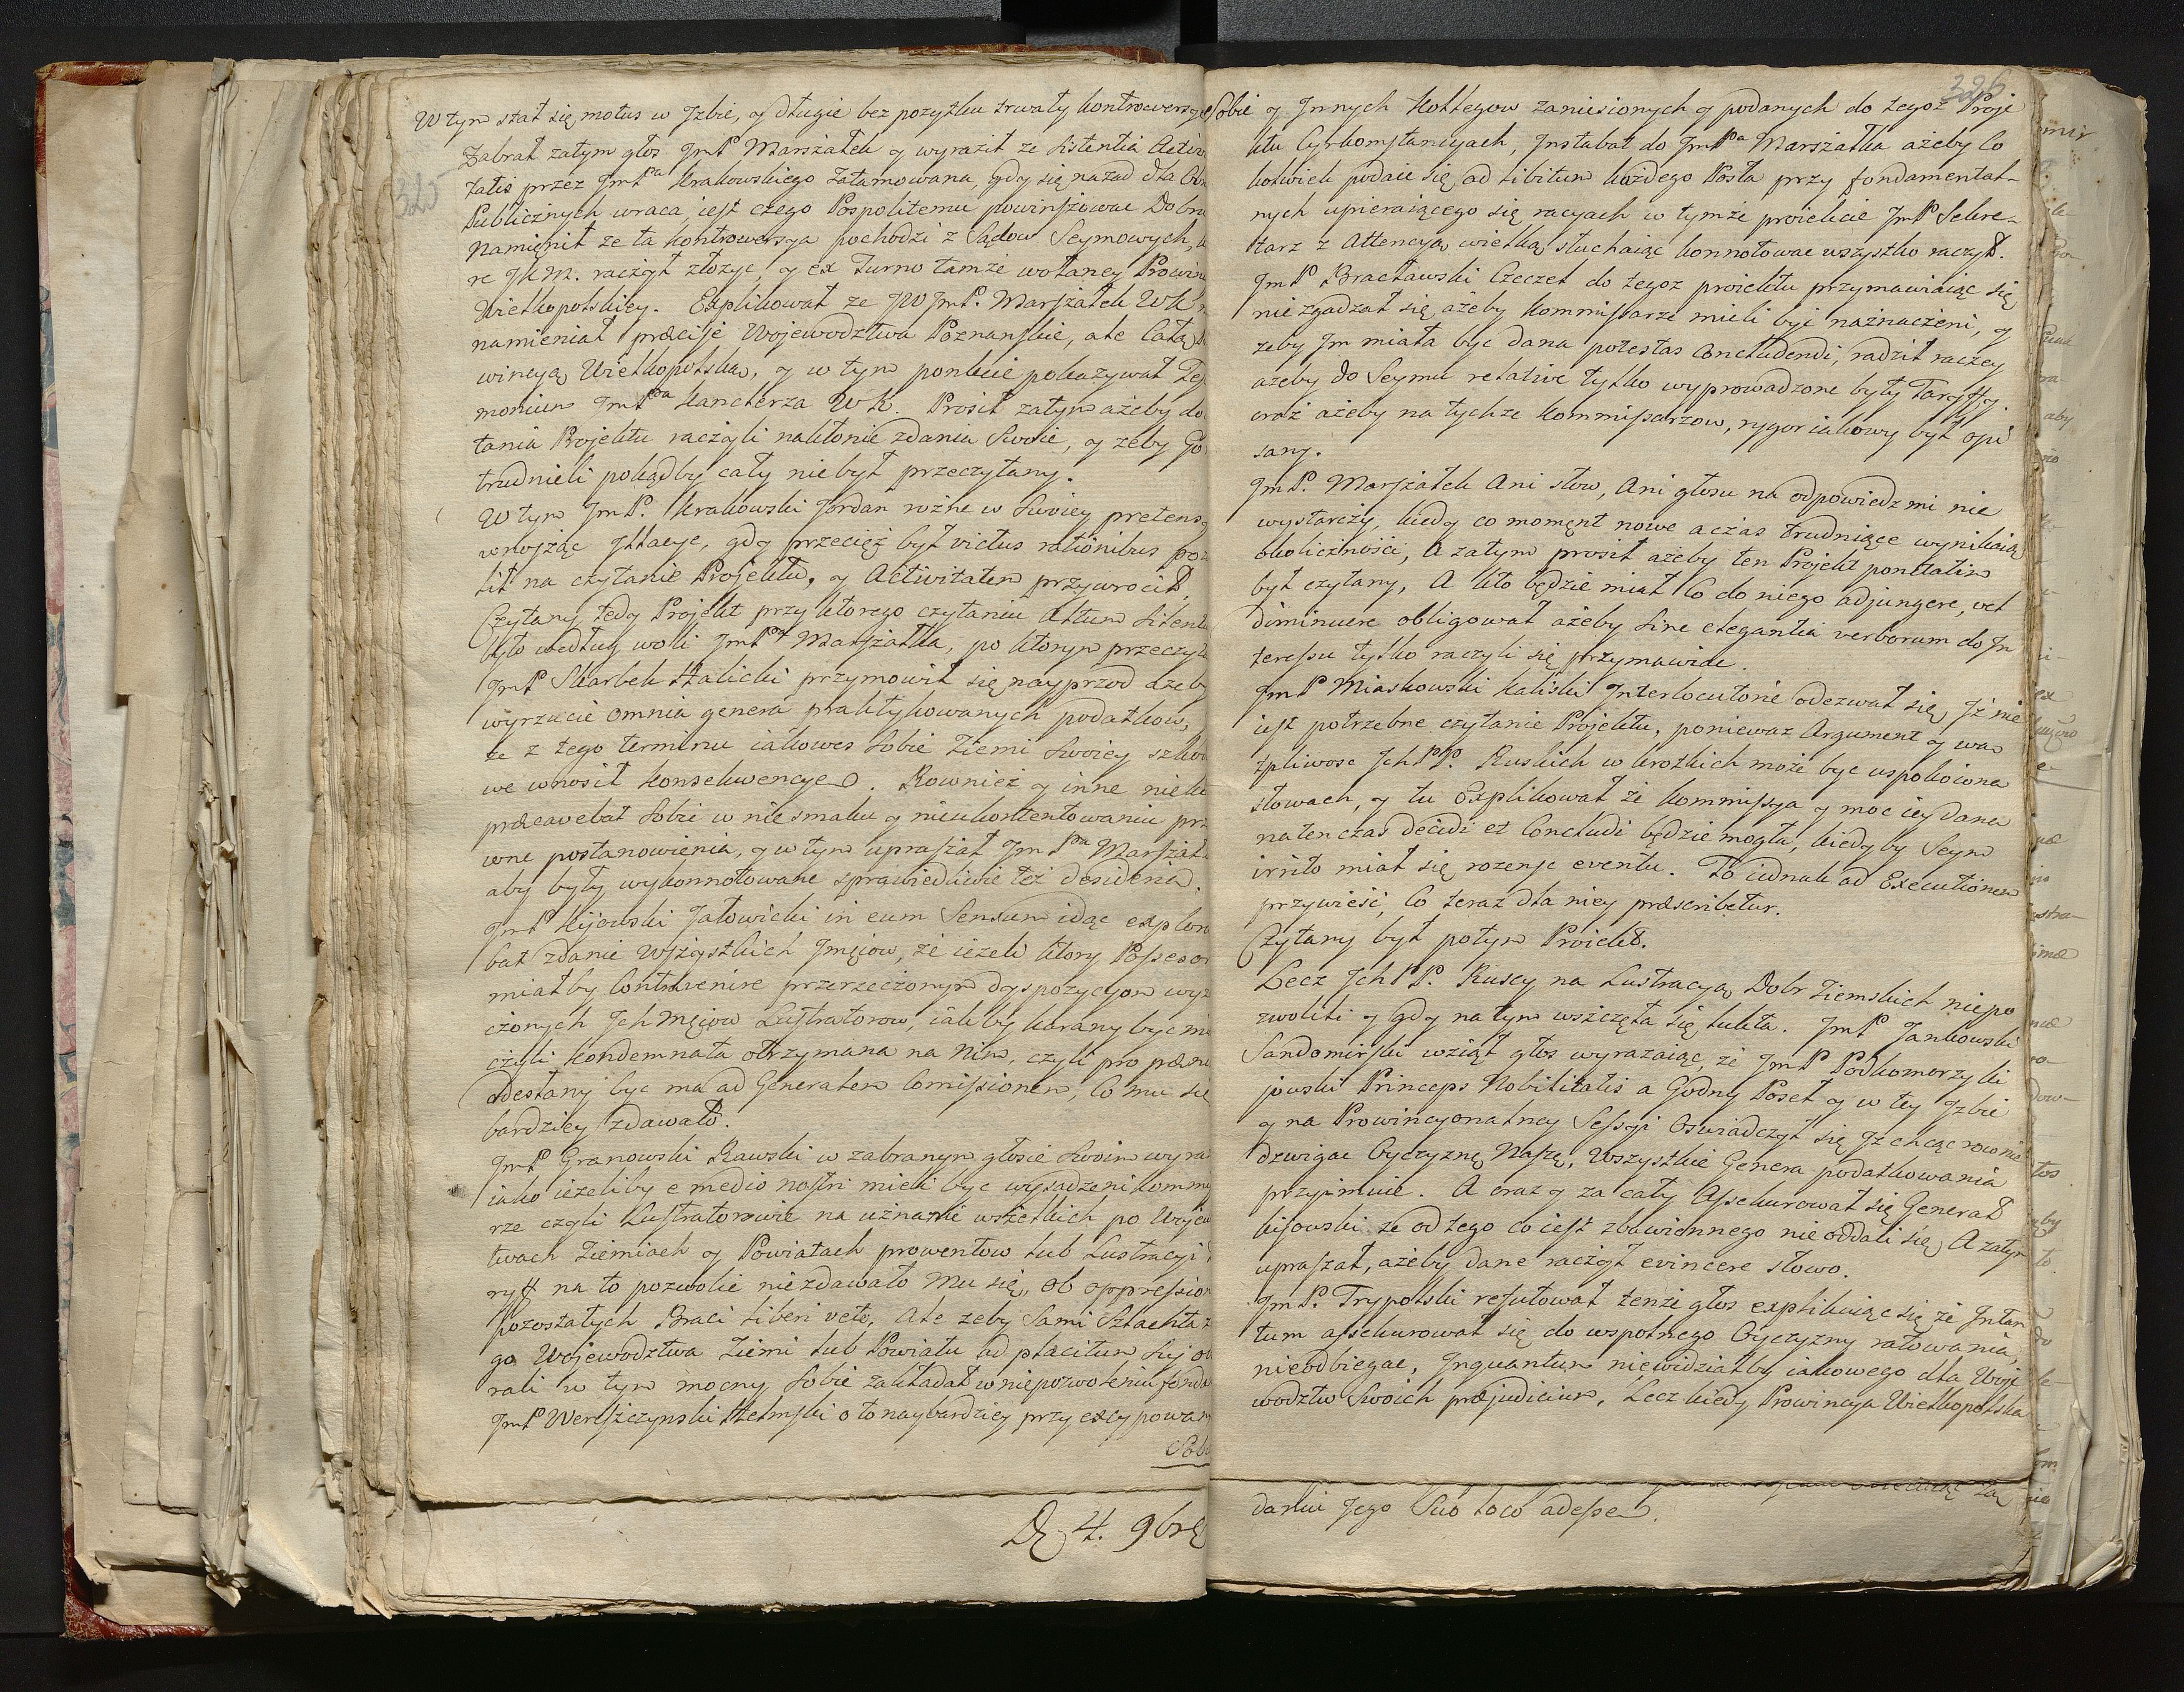 W tym stał się motus w Jzbie, y długie bez pozytku trwały kontrowersye
Zabrał zatym głos JmP Marszałek y wyraził ze Sistentia Activi
tatis przez JmPa Krakowskiego zatamowana, gdy się nazad dla
Publicznych wraca, iest czego Pospolitemu powinszowac Dobru
Namięnił ze ta kontrowersya pochodzi z Sądow Seymowych,
re JKM. raczył złozyc, y ex Turno tamże wołaney Prowin
Wielkopolskiey. Explikował ze JW JmP. Marszałek WK
namieniał præcise Wojewodztwa Poznanskie, ale Całą
wincyą Wielkopolską, y w tym ponkcie pokazywał Tes
monium JmPna Kanclerza WK. Prosił zatym ażeby do
tania Projektu raczyli nakłonic zdania Swoie, y zeby Go
trudnieli pokądby cały niebył przeczytany.
W tym JmP. Krakowski Jordan rożne w Swoiey pretensy
wnosząc Jllacye, gdy przecięż był victus rationibus poz
lił na czytanie Projektu, y Activitatem przywrocił.
Czytany tedy Projekt przy ktorego czytaniu Altum Silent
było według woli JmPa Marszałka, po ktorym przeczyt
JmP Skarbek Halicki przymowił się nayprzod azeby
wyrzucic omnia genera praktykowanych podatkow,
że z tego terminu iakowes Sobie Ziemi Swoiey szko
we wnosił konsekwencye. Rownież y inne nie
præcavebat Sobie w niesmaku y nieukontentowaniu prz
wne postanowienia, y w tym upraszał JmPa Marszał
aby były wykonnotowane sprawiedliwie też desideria.
JmP Kijowski Jałowicki in eum Sensum idąc explor
bat zdanie Wszystkich Jmęiow, że ieżeli ktory Possessor
miałby Contravenire przerzeczonym dyspozycyom wyz
czonych Jchmęiow Lustratorow, iakby karany byc mi
czyli kondemnata otrzymana na Nim, czyli pro pœna
odesłany byc ma ad Generalem Comissionem, Co mu się
bardziey zdawało.
JmP Granowski Rawski w zabranym głosie Swoim wyra
iako ieżeliby e medio nostri mieli byc wysadzeni kommis
rze czyli Lustratorowie na uznanie wszelkich po Wojew
twach Ziemiach y Powiatach prowentow lub Lustracyi
na to pozwolic niezdawało Mu się, ob oppressio
pozostałych Braci liberi veto, Ale zeby Sami Szlachta
go Wojewodztwa Ziemi lub Powiatu ad placitum
rali w tym mocny Sobie zakładał w niepozwoleniu fonda
JmP Wereszczynski Chełmski o to naybardziey przy excypowan
Sobi
D. 4. 9bris
325
326
Sobie y Jnnych Kollegow zaniesionych y podanych do tegoż Proje
ktu Cyrkomstancyach, Jnstabat do JmPa Marszałka ażeby Co
kolwiek podaie się ad libitum każdego Posła przy fondamental-
nych upieraiącego się racyach w tymże proiekcie JmP Sekre-
tarz z Attencyą wielką słuchaiąc konnotowac wszystko raczył.
JmP Bracławski Czeczel do tegoz proiektu przymawiaiąc się
niezgadzał się ażeby kommissarze mieli byc naznaczeni, y
zeby Jm miała byc dana potestas Concludendi, radził raczey
azeby do Seymu relative tylko wyprowadzone były Taryffy
oraz ażeby na tychze kommissarzow, rygor iakowy był opi
sany.
JmP. Marszałek Ani słow, Ani głosu na odpowiedz mi nie
wystarczy, kiedy co momęnt nowe a czas trudniące wynikaią
okoliczności, A zatym prosił ażeby ten Projekt ponktatim
był czytany, A kto będzie miał Co do niego adjungere, vel
diminuere obligował ażeby Sine elegantia verborum do Jn
teressu tylko raczyli się przymawiac.
JmP Miaskowski Kaliski Jnterlocutorie odezwał się, Jż nie
iest potrzebne czytanie Projektu, poniewaz Argument y wa
tpliwosc JchPP. Ruskich w krotkich może byc uspokoiona
słowach, y tu Explikował że kommissya y moc iey dana
naten czas decidi et Concludi będzie mogła, kiedyby Seym
irrito miał się rozeysc eventu. To iednak ad Executionem
przywieść, Co teraz dla niey præscribetur.
Czytany był potym Proiekt.
Lecz JchPP. Ruscy na Lustracyą Dobr Ziemskich niepo
zwolili y gdy na tym wszczęła się lukta. JmP Jankowski
Sandomirski wziął głos wyrazaiąc, że JmP Podkomorzy Ki
jowski Princeps Nobilitatis a Godny Poseł y w tey Jzbie
y na Prowincyonalney Sessyi Oswiadczył się Jż chcąc rownie
dzwigac Oyczyznę Naszę, Wszystkie Genera podatkowania
przyimuie. A oraz y za cały Assekurował się Generał
kijowski ze od tego co iest zbawiennego nie oddali się, A zatym
upraszał, ażeby dane raczył evincere słowo.
JmP. Trypolski refutował tenże głos explikuiąc się że Jntan
tum assekurował się do wspolnego Oyczyzny ratowania,
nieodbiegac, Jnquantum niewidziałby iakowego dla Woje
wodztw Swoich præjudicium, Lecz kiedy Prowincya Wielkopolska
darlui Jego Suo loco adesse.